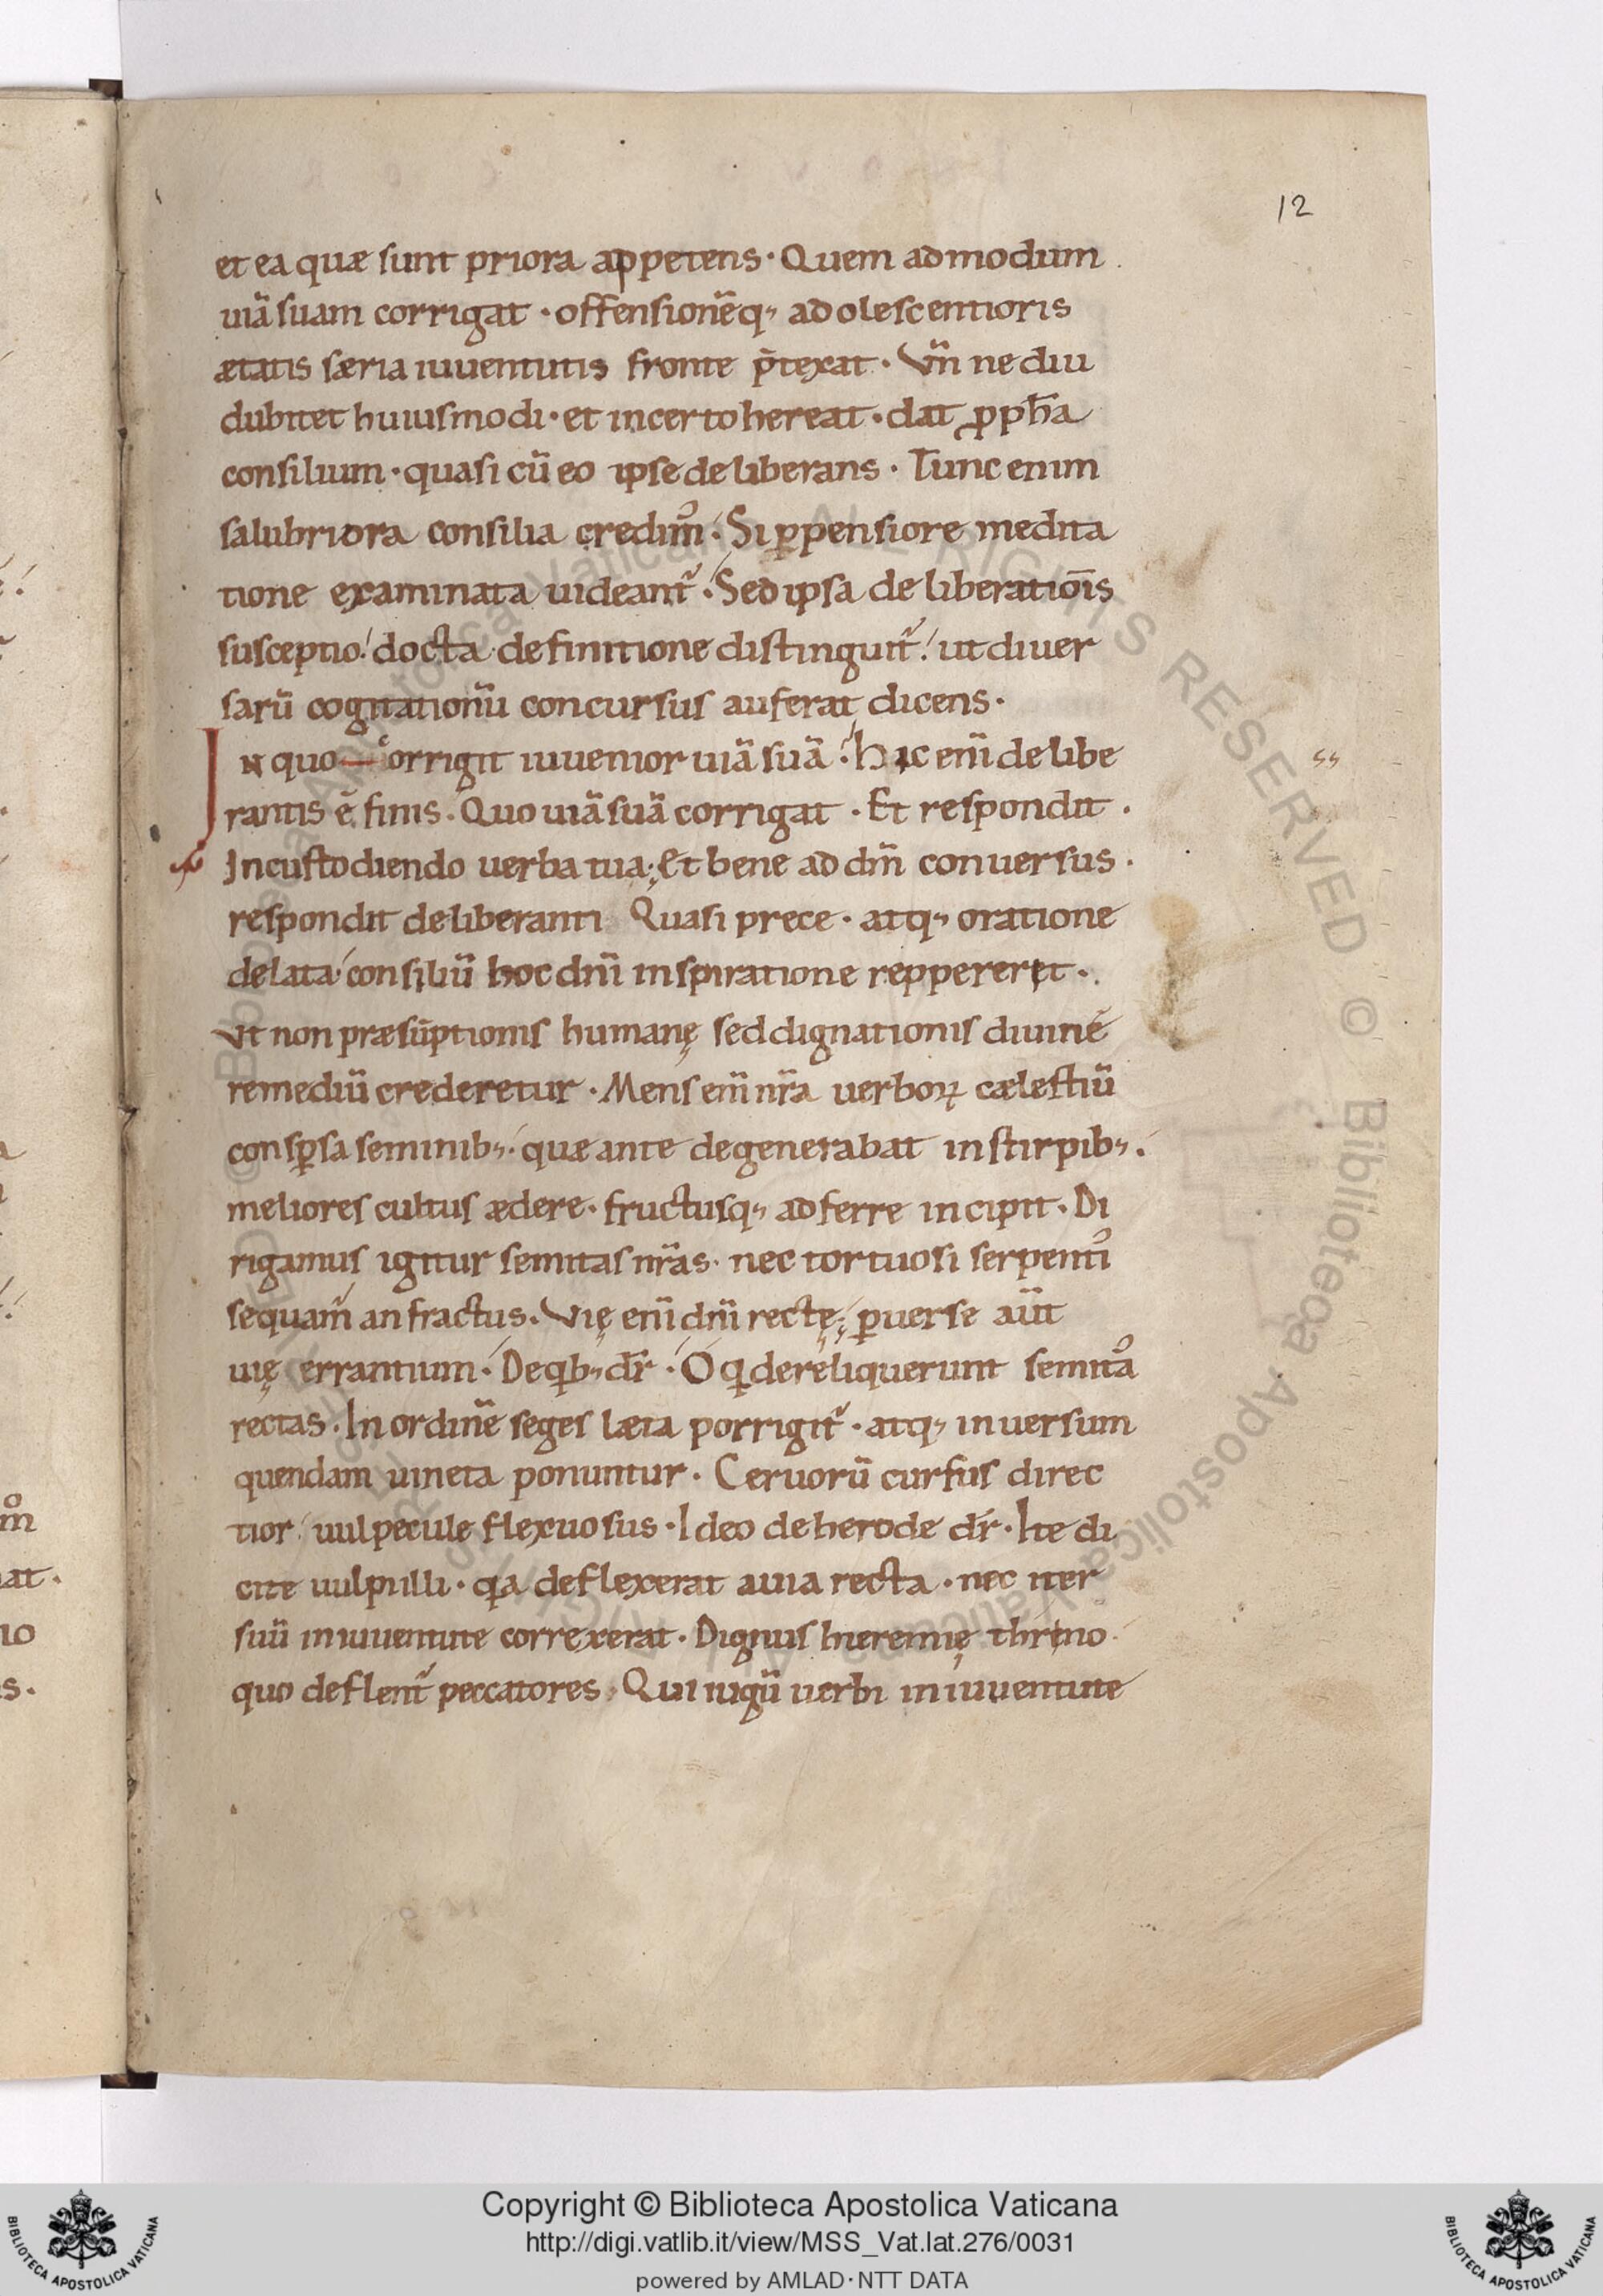 12
et ea quæ sunt priora appetens · Quem admodum
uiā suam corrigat · offensionēq; adolescentioris
ætatis særia iuuentutis fronte p̄texat · Vn̄ ne diu
dubitet huiusmodi · et incerto hereat · dat ꝓph̄a
consilium · quasi cū eo ipse deliberans · Tunc enim
salubriora consilia credim᷒ · Si ꝑpensiore medita
tione examinata uideant᷑ · Sed ipsa deliberatiōis
susceptio · docta definitione distinguit᷑ · ut diuer
sarū cogitationū concursus auferat dicens ·
In quo corrigit iuuenior uiā suā · hic enī delibe
rantis ē finis · Quo uiā suā corrigat · Et respondit ·
In custodiendo uerba tua · Et bene ad dn̄m conuersus ·
respondit deliberanti Quasi prece · atq; oratione
delata consiliū hoc dn̄i inspiratione reppereret ·
Vt non præsūptionis humanę sed dignationis diuine
remediū crederetur · Mens enī nr̄a uerboꝝ cælestiū
consꝑsa seminib; · quæ ante degenerabat in stirpib; ·
meliores cultus ædere · fructusq; adferre incipit · Di
rigamus igitur semitas nr̄as · nec tortuosi serpenti᷒
sequam̄ anfractus · Vię enī dn̄i rectę · ꝑuerse aūt
uię errantium · De qb; dr̄ · O qui dereliquerunt semita᷒
rectas · In ordinē seges læta porrigit᷑ · atq; in uersum
quendam uineta ponuntur · Ceruorū cursus direc
tior uulpecule flexuosus · Ideo de herode dr̄ · Ite di
cite uulpi illi · qa deflexerat a uia recta · nec iter
suū in iuuentute correxerat · Dignus hieremię threno
quo deflent᷑ peccatores · Qui iugū uerbi in iuuentute
Copyright © Biblioteca Apostolica Vaticana
http://digi.vatlib.it/view/MSS_Vat.lat.276/0031
powered by AMLAD·NTT DATA
BIBLIOTECA APOSTOLICA VATICANA
BIBLIOTECA APOSTOLICA VATICANA